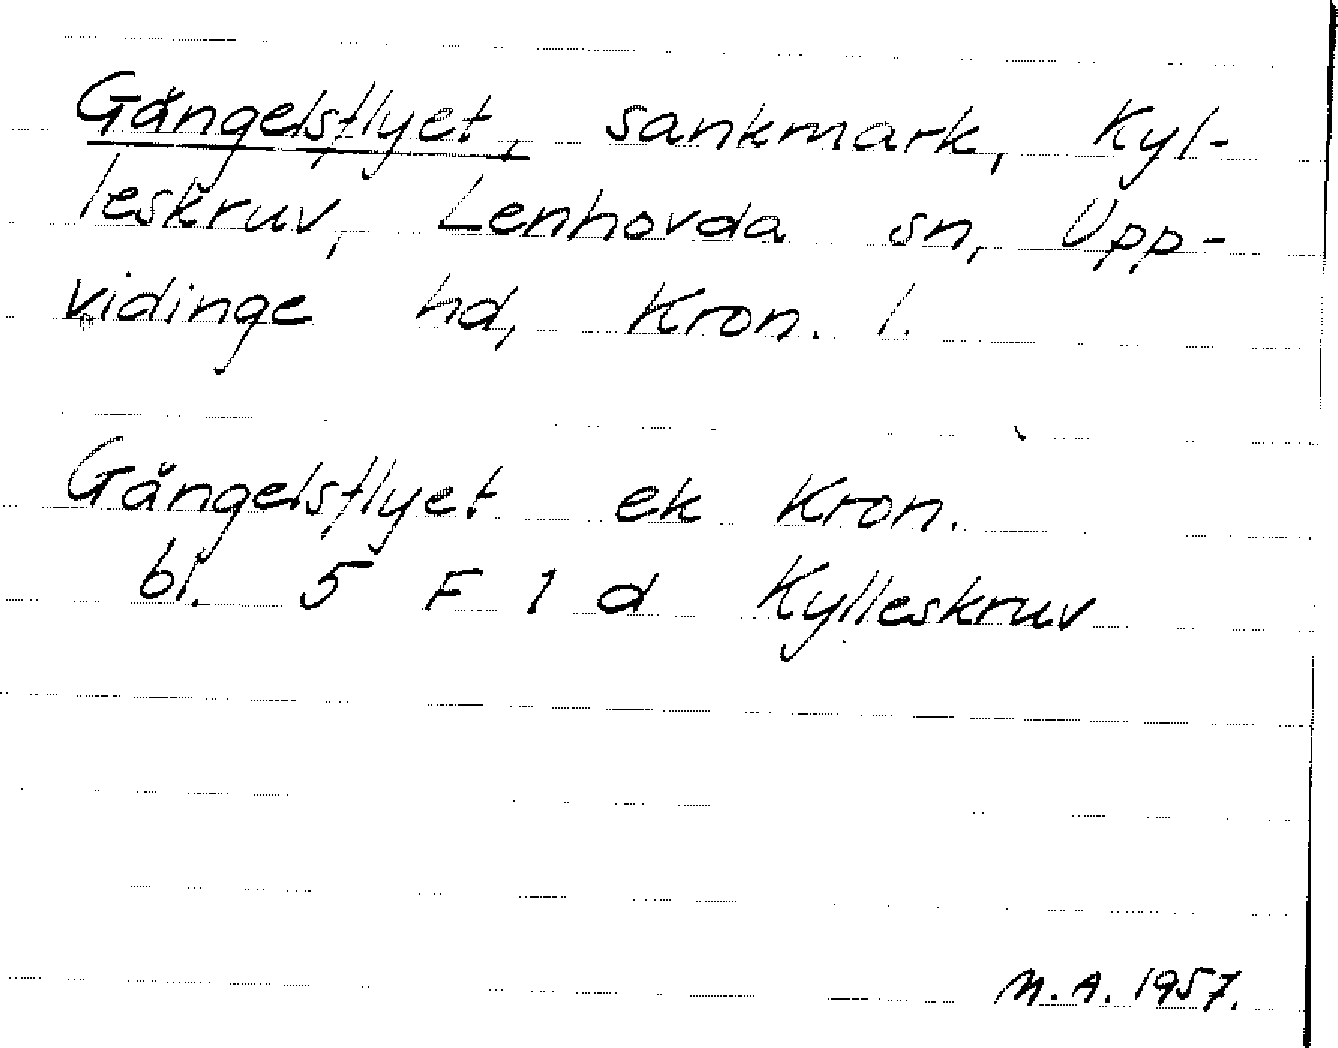 Gångelsflyet, sankmark, Kyl-
leskruv, Lenhovda sn, Upp-
vidinge hd, Kron. l.
Gångelsflyet ek Kron.
bl. 5 F 1 d Kylleskruv
M.A. 1957.